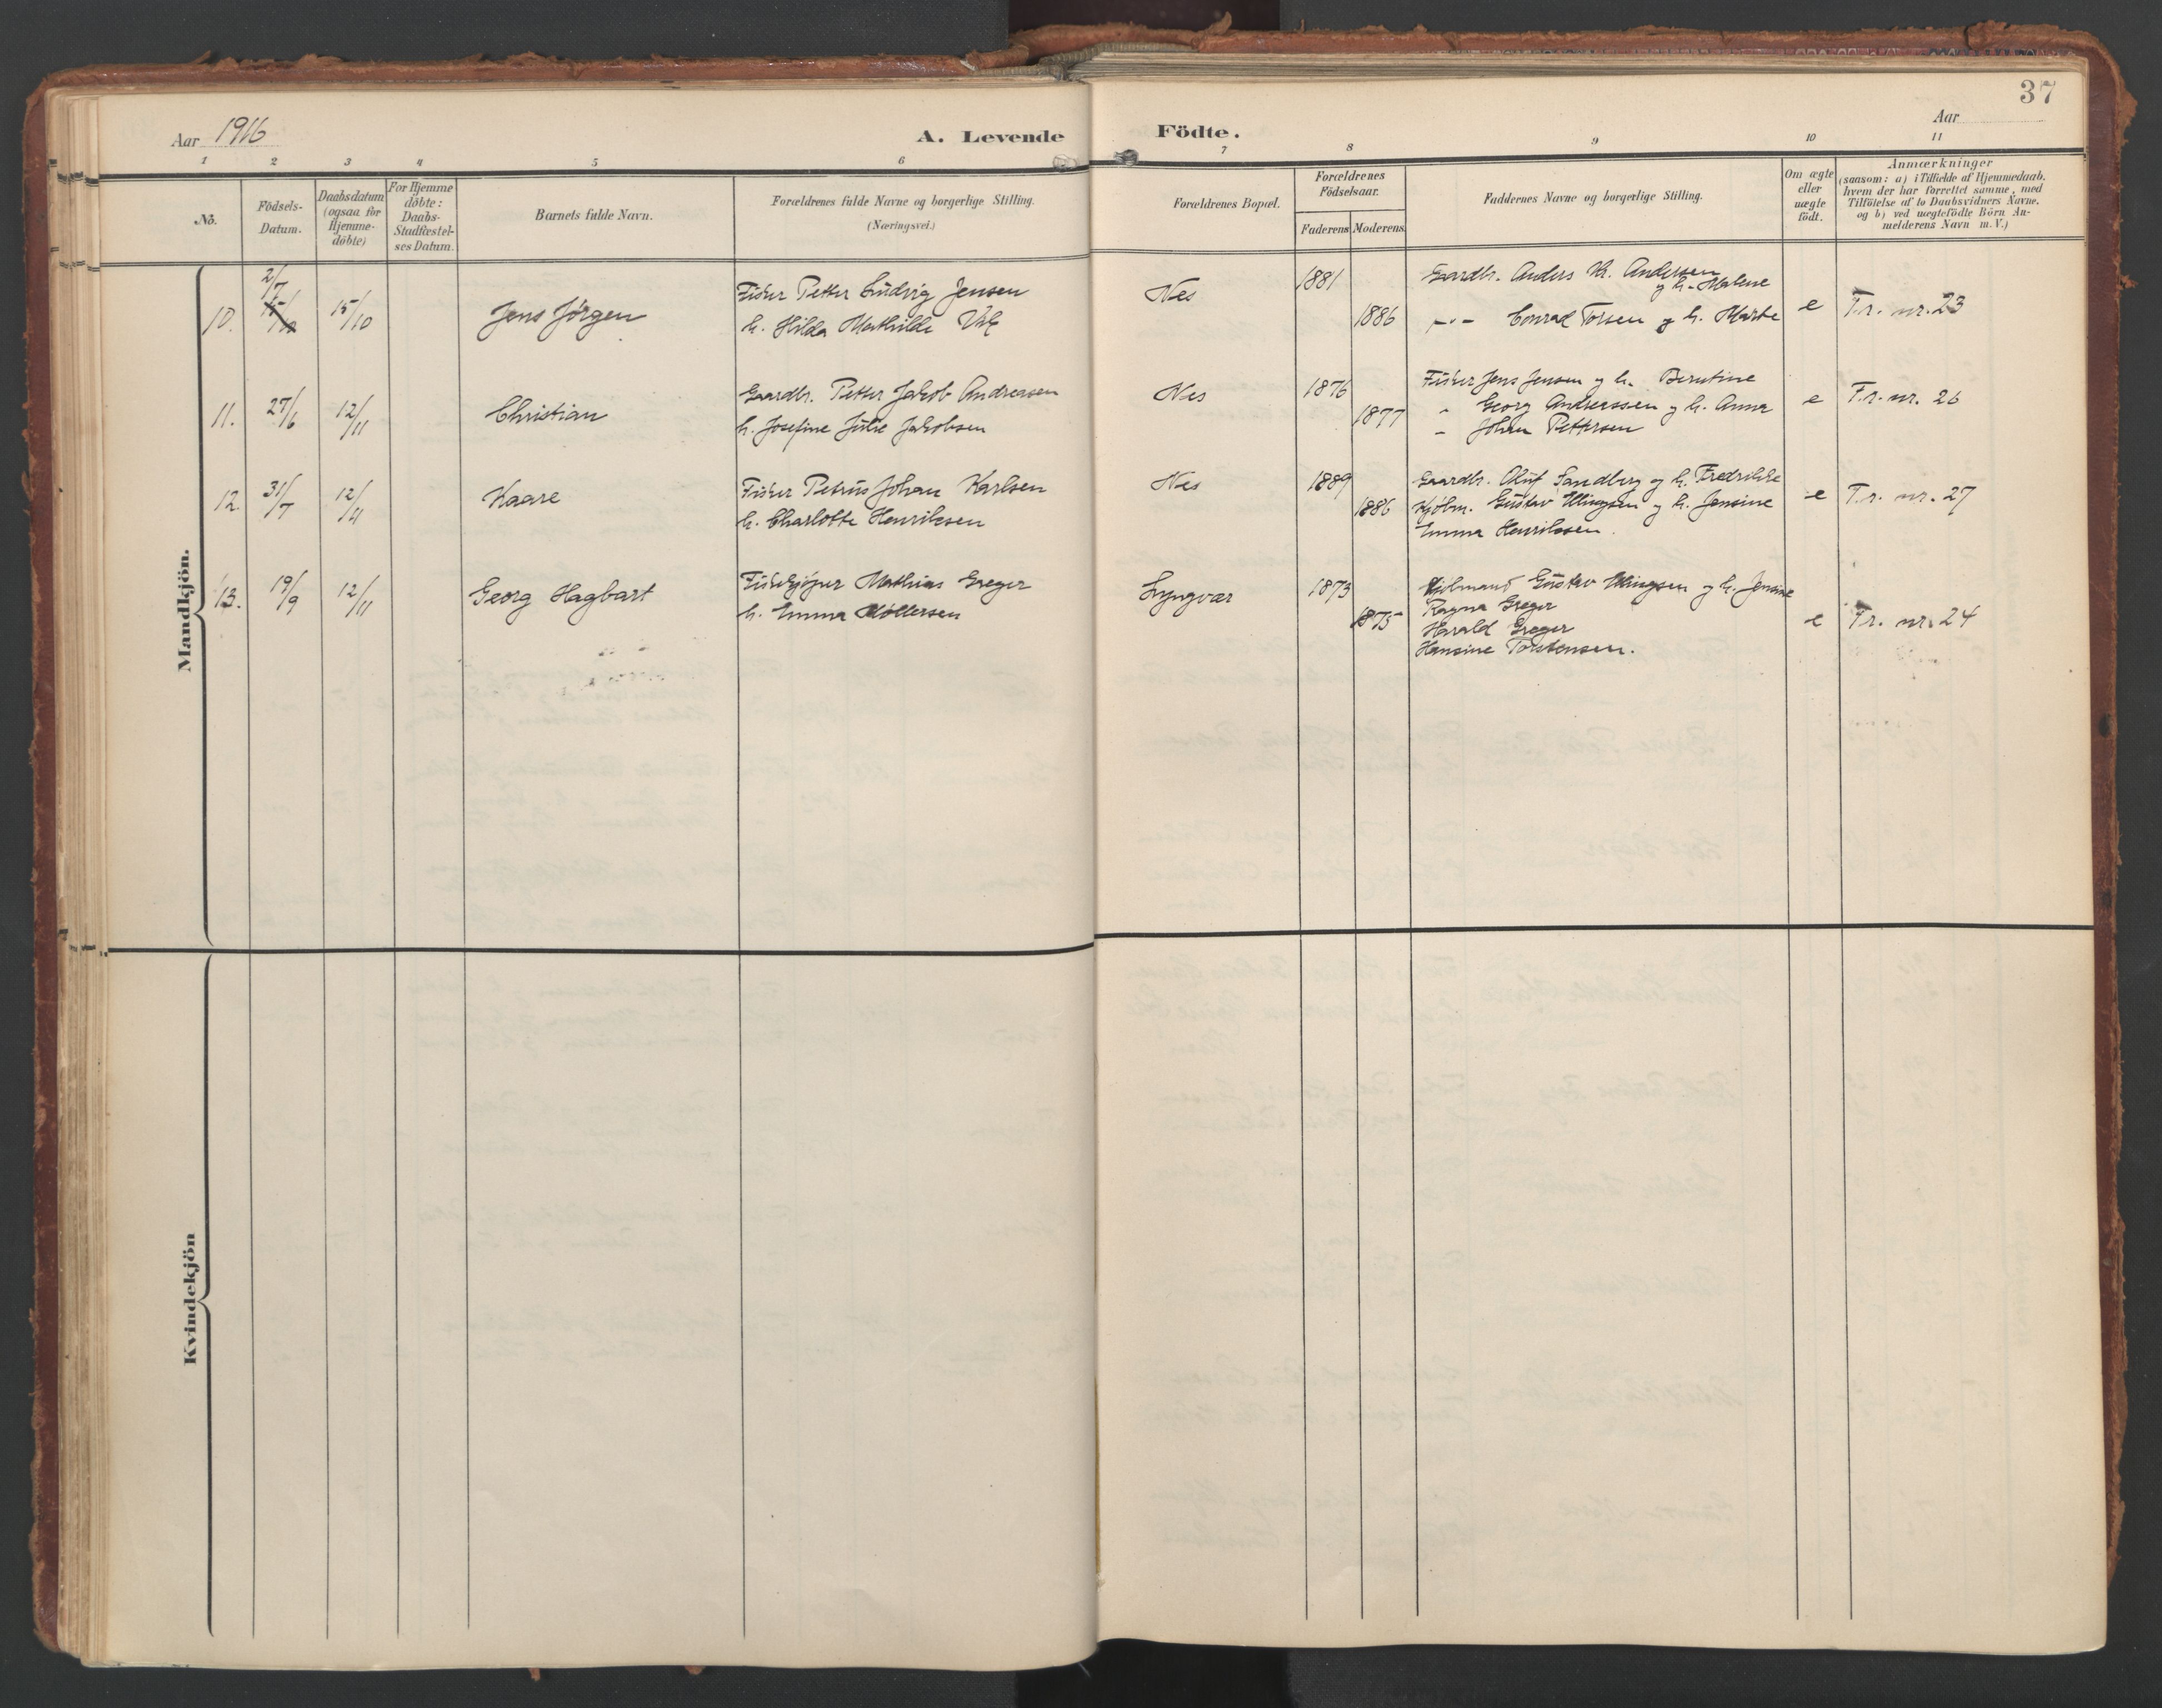 37
Aar 1916
A. Levende Födte.
Aar
1 2 3 4 5 6 7 8 9 10 11
No.
Födsels-Datum.
Daabsdatum (ogsaa for Hjemme-döbte)
For Hjemme döbte: Daabs-Stadfæstel-ses Datum.
Barnets fulde Navn.
Forældrenes fulde Navne og borgerlige Stilling.
(Næringsvei.)
Forældrenes Bopæl.
Forældrenes Födselsaar.
Faderens Moderens
Faddernes Navne og borgerlige Stilling.
Om ægte eller uægte födt.
Anmærkninger
(saasom: a) i Tilfælde af Hjemmedaab.
hvem der har forrettet samme, med
Tilföielse af to Daabsvidners Navne.
og b) ved uægtefödte Börn An-
melderens Navn m.V.)
Mandkjön.
10. 2/7 15/10 15/10 Jens Jørgen
Fisker Petter Ludvig Jensen
h. Hilda Mathilde
Nes 1881 1886
Gaardbr. Anders Kr. Andersen
og h. Malene
–"– Conrad Torsen og h. Marte
e T.r. nr. 23
11. 27/6 12/11 Christian
Gaardbr. Petter Jakob Andreasen
h. Josefine Julie Jakobsen
Nes 1876 1877
Fisker Jens Jensen og h. Berntine
" Georg Andreassen og h. Anna
– Johan Pettersen
e T.r. nr. 26
12. 31/7 12/11 Kaare
Fisker Petrus Johan Karlsen
h. Charlotte Henriksen
Nes 1889 1886
Gaardbr. Oluf Sandberg og h. Fredrikke
Kjøbm. Gustav Ellingsen og h. Jensine
Emma Henriksen.
e T.r. nr. 27
13. 19/9 12/11 Georg Hagbart
Fiskekjøper Mathias Greger
h. Emma Møllersen
Lyngvær 1873 1875
Kjøbmand Gustav Ellingsen og h. Jensine
Ragna Greger
Harald Greger
Hansine Torstensen.
e Tr. nr. 24
Kvindekjön